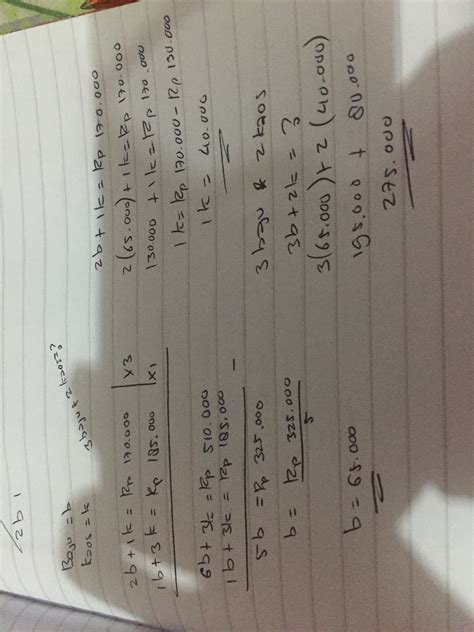 2b 1
Baju = b
kaos = k
3 baju & 2 kaos = ?
2b + 1k = Rp 170.000 | x3
1b + 3k = Rp 185.000 | x1
6b + 3k = Rp 510.000
1b + 3k = Rp 185.000 -
5b = Rp 325.000
b = Rp 325.000
5
b = 65.000
2b + 1k = Rp 170.000
2(65.000) + 1k = Rp 170.000
130.000 + 1k = Rp 170.000
1k = Rp 170.000 - Rp 130.000
1k = 40.000
3 baju & 2 kaos
3b + 2k = ?
3(65.000) + 2(40.000)
195.000 + 80.000
275.000